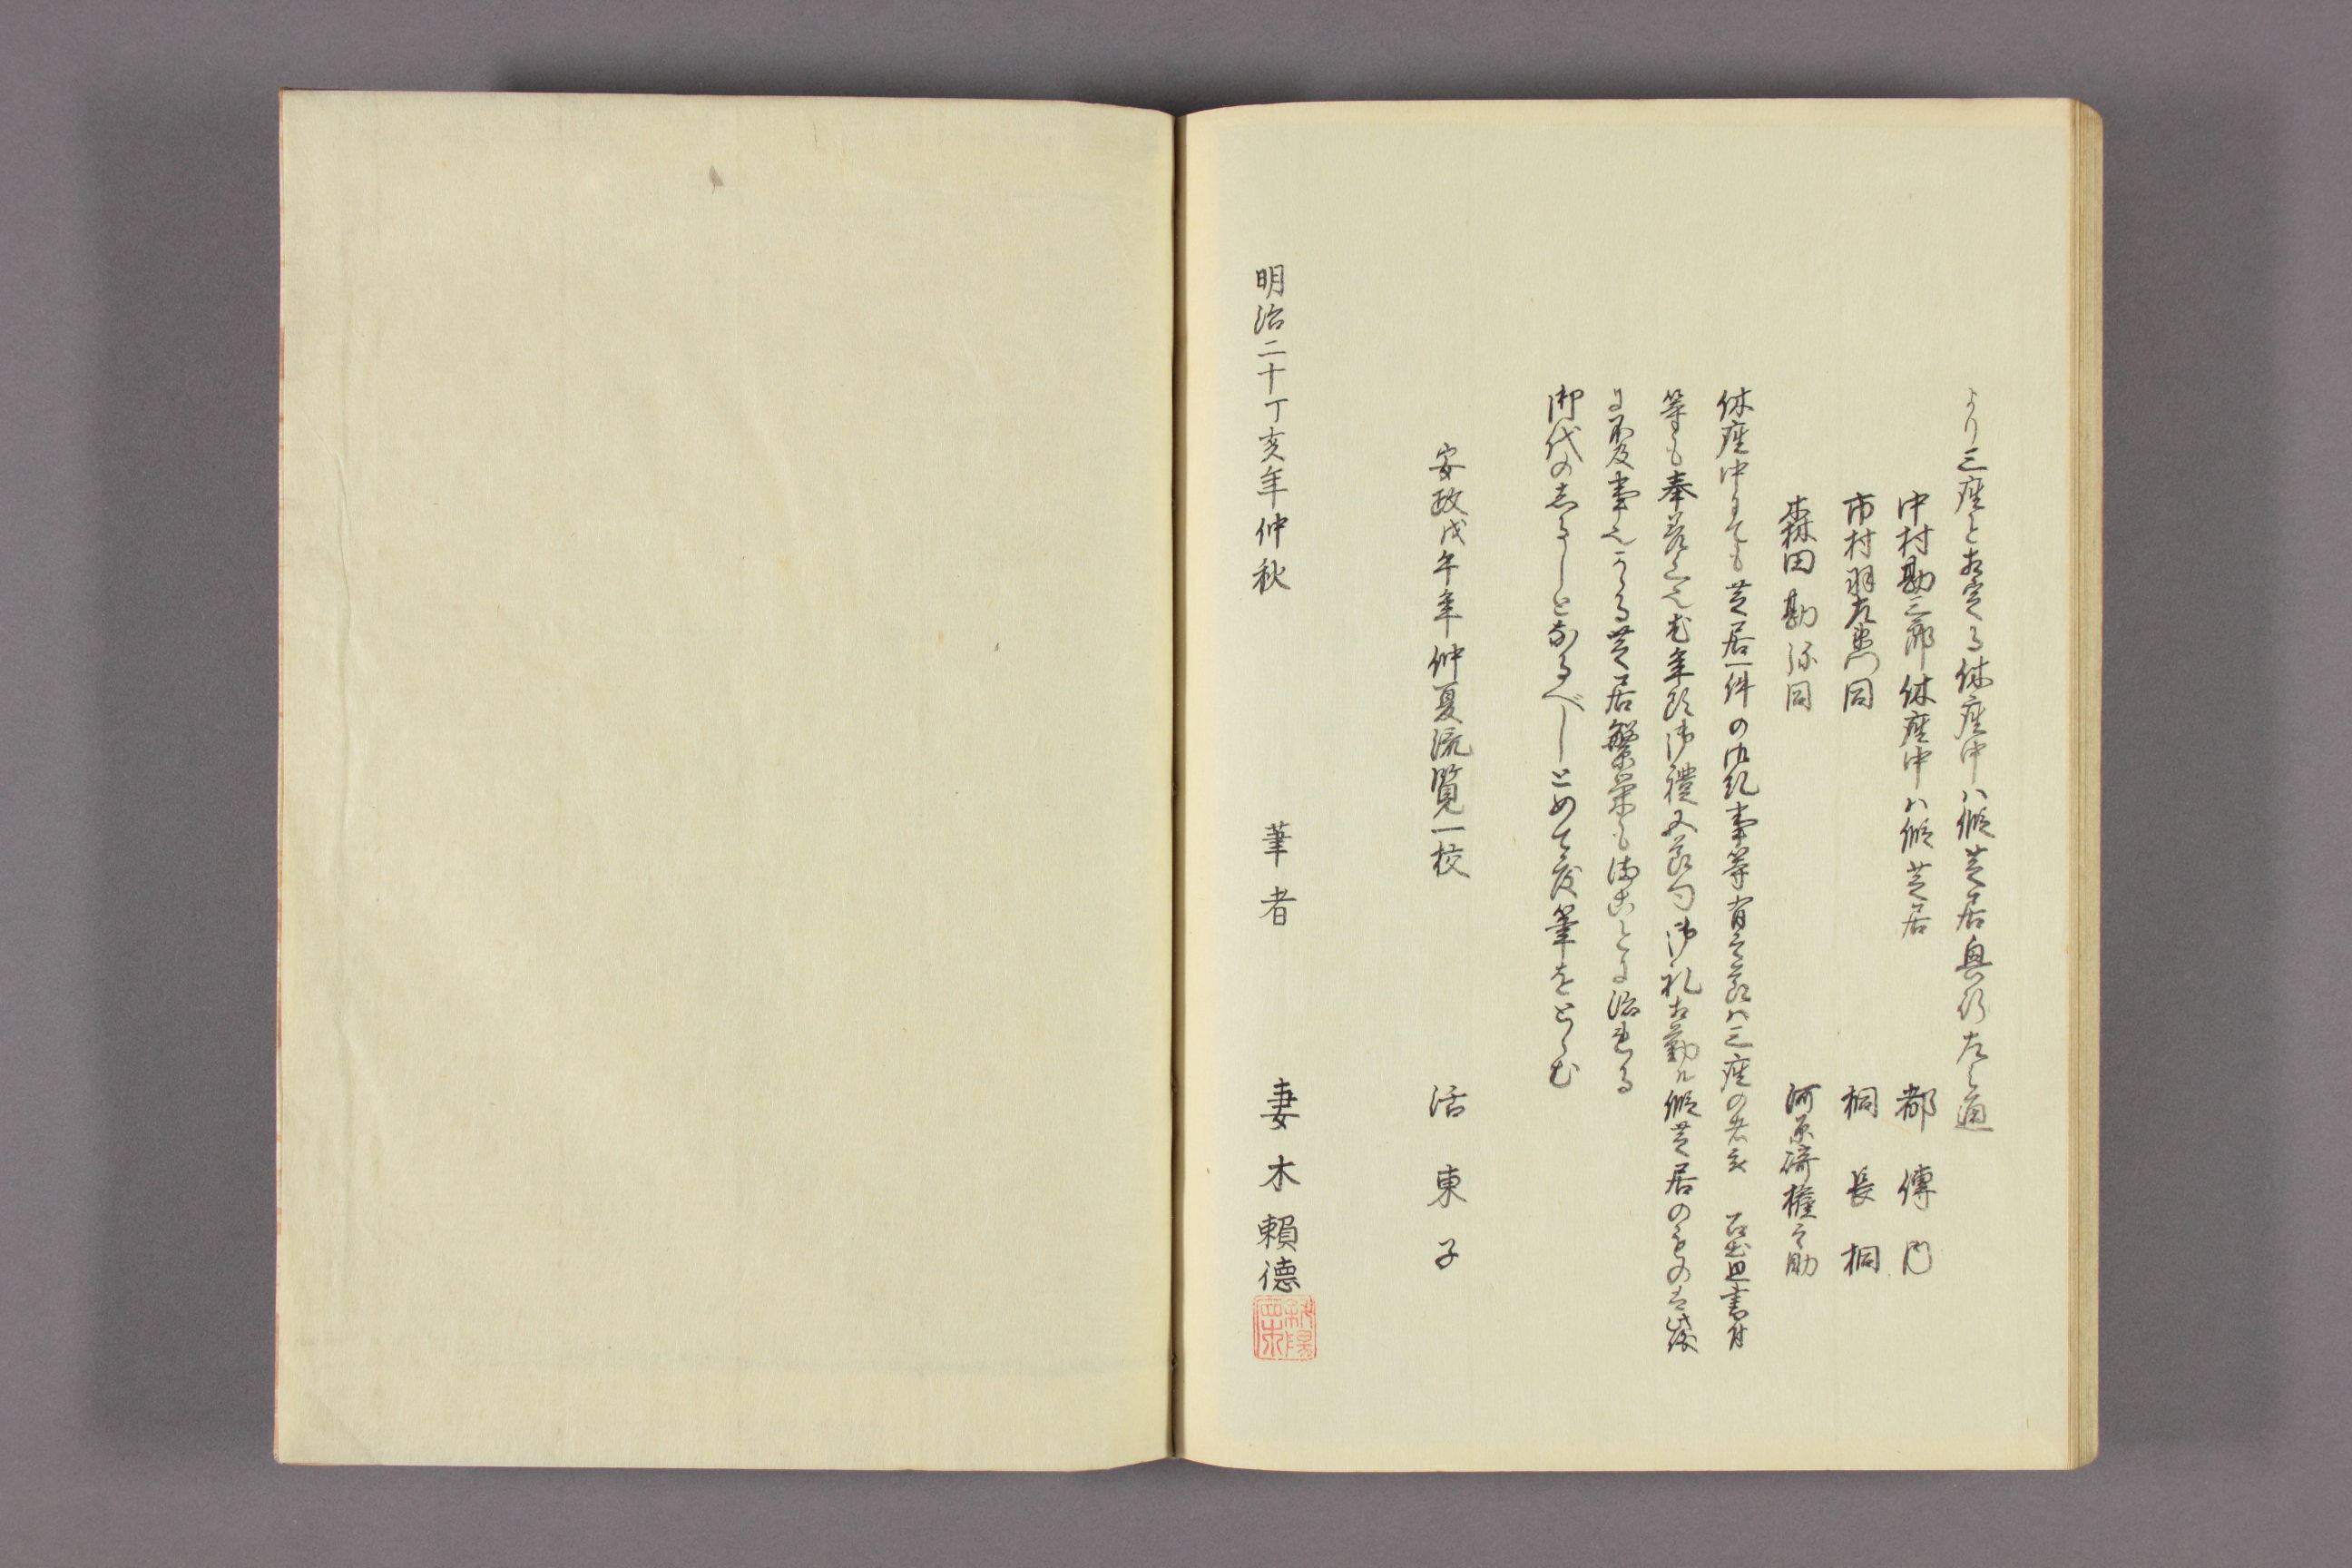 より三座と相定る休座中ハ仮芝居興行左之通
中村勘三郎休座中ハ仮芝居 都傳内
市村羽左衛門同 桐長桐
森田勘弥同 河原崎権之助
休座中にても芝居一件の御糺事等有之節ハ三座の者え 書付
等も奉 年頭御禮五節句御礼相勤ル仮芝居のものハ
に 事也かゝる芝居繁栄も 治れる
御代のしるしとなるべしとめて度筆をとゝむ
安政戊午年仲夏流覧一校 活東子
明治二十丁亥年仲秋 筆者 妻木頼德